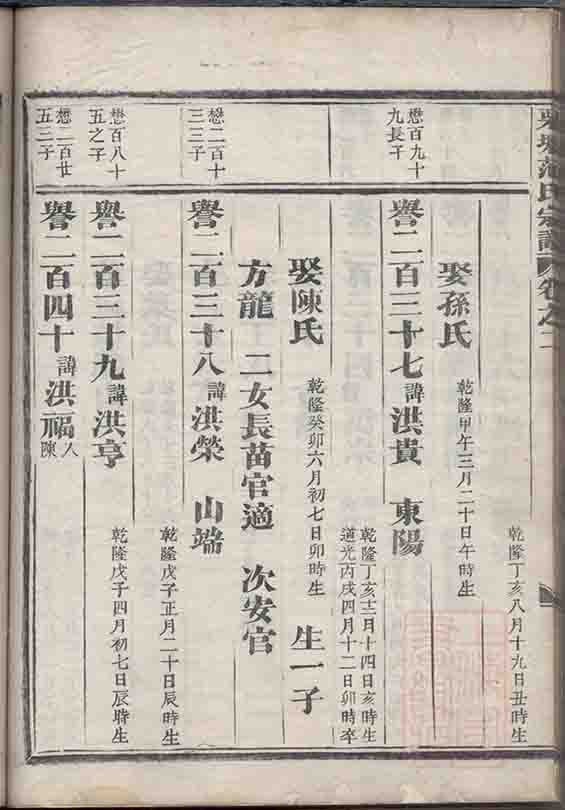 范氏宗譜 卷之二
乾隆丁亥八月十九日丑時生
娶孫氏 乾隆甲午三月二十日午時生
懋百九十
九長子
譽二百三十七諱洪貴 東陽
乾隆丁亥十二月十四日亥時生
道光丙戌四月十二日卯時卒
娶陳氏 乾隆癸卯六月初七日卯時生 生一子
方龍 二女長苗官適 次安官
懋二百十
三三子
譽二百三十八諱洪榮 山端
乾隆戊子正月二十日辰時生
懋百八十
五之子
譽二百三十九諱洪亨
乾隆戊子四月初七日辰時生
懋二百廿
五三子
譽二百四十諱洪福 人
陳